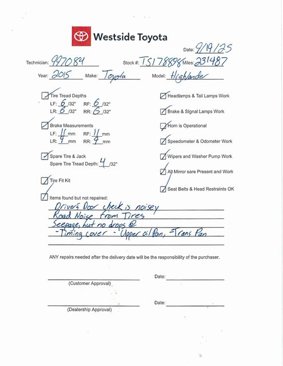 Westside Toyota
Date: 9/19/25
Technician: 997084 Stock #: TS178898 Miles: 231487
Year: 2015 Make: Toyota Model: Highlander
Tire Tread Depths
LF: 6 /32" RF: 6 /32"
LR: 6 /32" RR: 6 /32"
Brake Measurements
LF: 11 mm RF: 11 mm
LR: 9 mm RR: 9 mm
Spare Tire & Jack
Spare Tire Tread Depth: 4 /32"
Tire Fit Kit
Headlamps & Tail Lamps Work
Brake & Signal Lamps Work
Horn is Operational
Speedometer & Odometer Work
Wipers and Washer Pump Work
All Mirror sare Present and Work
Seat Belts & Head Restraints OK
Items found but not repaired:
Drivers Door check is noisey
Road Noise from Tires
Seepage, but no drops @
-Timing cover - Upper oil Pan, - Trans Pan
ANY repairs needed after the delivery date will be the responsibility of the purchaser.
Date:
(Customer Approval)
Date:
(Dealership Approval)